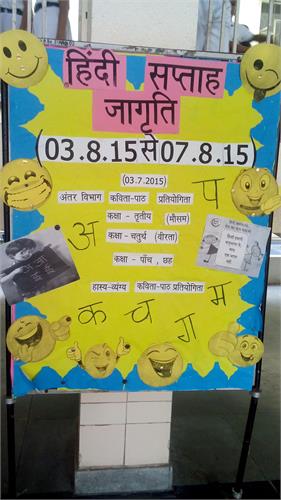 हिंदी सप्ताह
जागृति
(03.8.15 से 07.8.15)
(03.7.2015)
अंतर विभाग कविता-पाठ प्रतियोगिता
कक्षा - तृतीय (मौसम)
कक्षा - चतुर्थ (वीरता)
कक्षा - पाँच , छह
हास्य-व्यंग्य कविता-पाठ प्रतियोगिता
अ
प
क च ग म